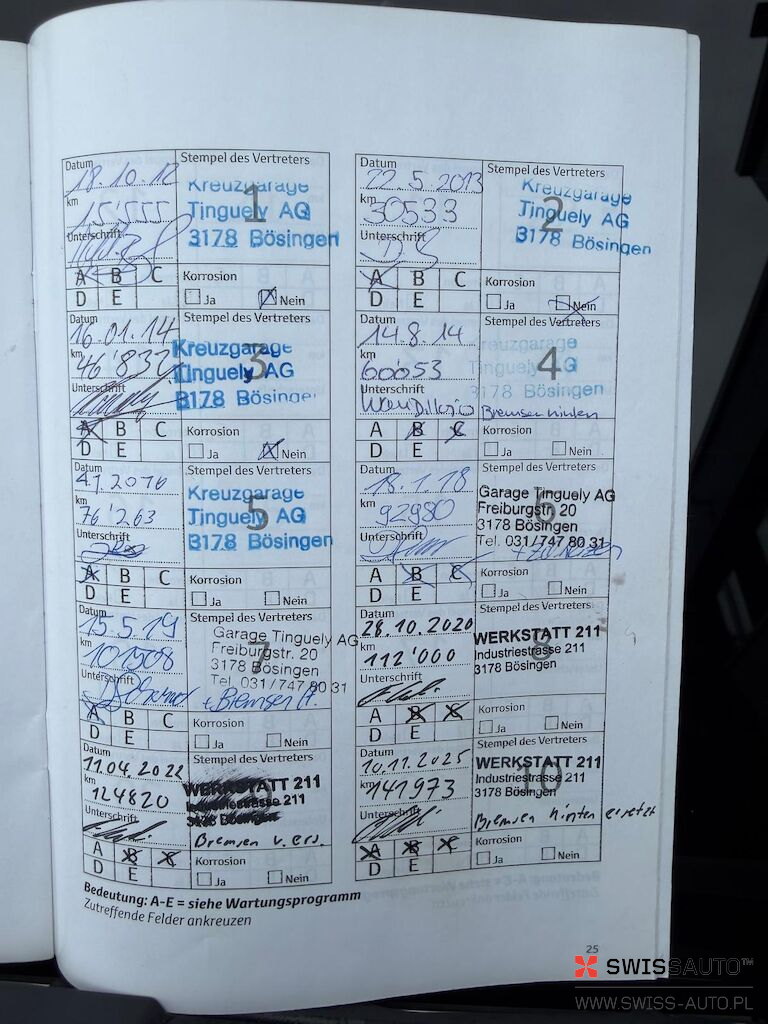 Datum
Stempel des Vertreters
18.10.12
km
15'555
Unterschrift
1
Kreuzgarage
Tinguely AG
3178 Bösingen
A B C
D E
Korrosion
Ja Nein
Datum
Stempel des Vertreters
22.5.2013
km
30533
Unterschrift
2
Kreuzgarage
Tinguely AG
3178 Bösingen
A B C
D E
Korrosion
Ja Nein
Datum
Stempel des Vertreters
16.01.14
km
46'832
Unterschrift
3
Kreuzgarage
Tinguely AG
3178 Bösingen
A B C
D E
Korrosion
Ja Nein
Datum
Stempel des Vertreters
14.8.14
km
60'053
Unterschrift
4
Kreuzgarage
Tinguely AG
3178 Bösingen
Bremsen hinten
A B C
D E
Korrosion
Ja Nein
Datum
Stempel des Vertreters
4.1.2016
km
76'263
Unterschrift
5
Kreuzgarage
Tinguely AG
3178 Bösingen
A B C
D E
Korrosion
Ja Nein
Datum
Stempel des Vertreters
18.1.18
km
92980
Unterschrift
6
Garage Tinguely AG
Freiburgstr. 20
3178 Bösingen
Tel. 031/747 80 31
A B C
D E
Korrosion
Ja Nein
Datum
Stempel des Vertreters
15.5.19
km
101508
Unterschrift
7
Garage Tinguely AG
Freiburgstr. 20
3178 Bösingen
Tel. 031/747 80 31
+ Bremsen
A B C
D E
Korrosion
Ja Nein
Datum
Stempel des Vertreters
28.10.2020
km
112'000
Unterschrift
8
WERKSTATT 211
Industriestrasse 211
3178 Bösingen
A B C
D E
Korrosion
Ja Nein
Datum
Stempel des Vertreters
11.04.2022
km
124820
Unterschrift
9
WERKSTATT 211
Industriestrasse 211
3178 Bösingen
Bremsen v. ers.
A B C
D E
Korrosion
Ja Nein
Datum
Stempel des Vertreters
10.11.2025
km
141973
Unterschrift
10
WERKSTATT 211
Industriestrasse 211
3178 Bösingen
Bremsen hinten ersetzt
A B C
D E
Korrosion
Ja Nein
Bedeutung: A-E = siehe Wartungsprogramm
Zutreffende Felder ankreuzen
25
SWISSAUTO™
WWW.SWISS-AUTO.PL